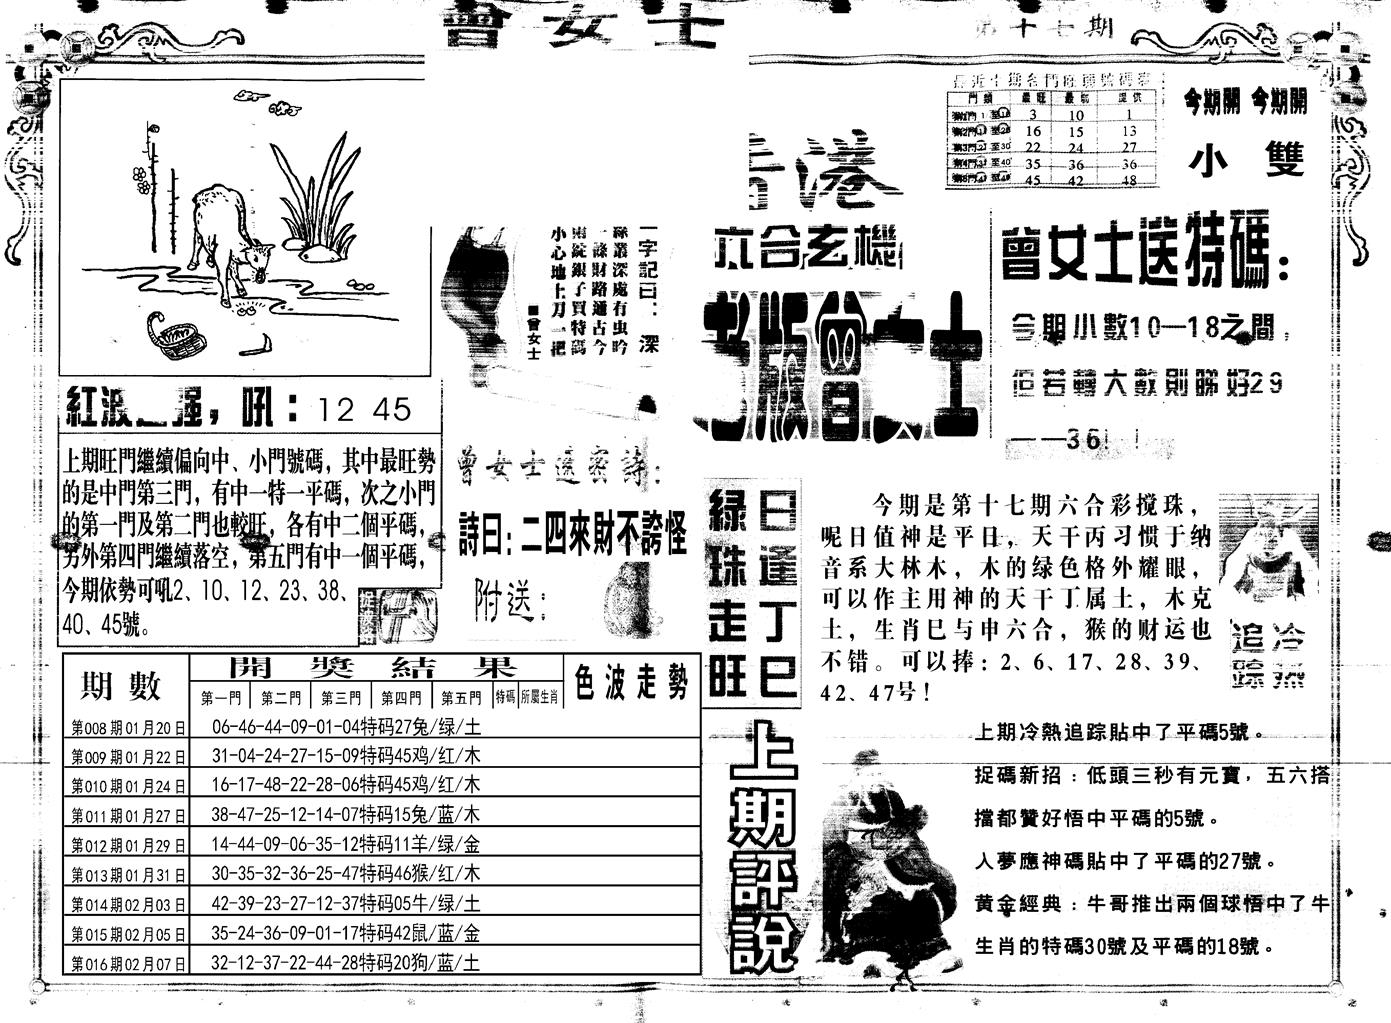 曾女士
第十七期
最近十期各門旺弱號碼表
門類 最旺 最弱 提供
第1門 1至10 3 10 1
第2門 11至20 16 15 13
第3門 21至30 22 24 27
第4門 31至40 35 36 36
第5門 41至49 45 42 48
今期開 今期開
小 雙
香港
六合玄機
老版曾女士
曾女士送特碼：
今期小數10—18之間，
但若轉大數則睇好29
——36！
一字記曰：深
綠叢深處有虫吟
一條財路通古今
兩錠銀子買特碼
小心地上刀一把
■曾女士
吼：12 45
上期旺門繼續偏向中、小門號碼，其中最旺勢
的是中門第三門，有中一特一平碼，次之小門
的第一門及第二門也較旺，各有中二個平碼，
另外第四門繼續落空，第五門有中一個平碼，
今期依勢可吼2、10、12、23、38、
40、45號。
曾女士送密詩：
詩曰：二四來財不誇怪
附送：
綠珠走旺
日逢丁巳
今期是第十七期六合彩搅珠，
呢日值神是平日，天干丙习惯于纳
音系大林木，木的绿色格外耀眼，
可以作主用神的天干丁属土，木克
土，生肖巳与申六合，猴的财运也
不错。可以捧：2、6、17、28、39、
42、47号！
冷熱
追踪
期數 開獎結果 色波走勢
第一門 第二門 第三門 第四門 第五門 特碼 所屬生肖
第008期01月20日 06-46-44-09-01-04特码27兔/绿/土
第009期01月22日 31-04-24-27-15-09特码45鸡/红/木
第010期01月24日 16-17-48-22-28-06特码45鸡/红/木
第011期01月27日 38-47-25-12-14-07特码15兔/蓝/木
第012期01月29日 14-44-09-06-35-12特码11羊/绿/金
第013期01月31日 30-35-32-36-25-47特码46猴/红/木
第014期02月03日 42-39-23-27-12-37特码05牛/绿/土
第015期02月05日 35-24-36-09-01-17特码42鼠/蓝/金
第016期02月07日 32-12-37-22-44-28特码20狗/蓝/土
上期評說
上期冷熱追踪貼中了平碼5號。
捉碼新招：低頭三秒有元寶，五六搭
擋都贊好悟中平碼的5號。
人夢應神碼貼中了平碼的27號。
黃金經典：牛哥推出兩個球悟中了牛
生肖的特碼30號及平碼的18號。